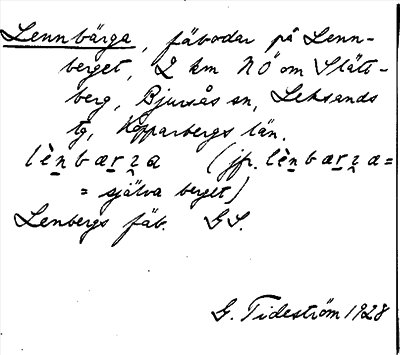 Lennbärga, fäbodar på Lenn-
berget, 2 km NÖ om Slätt-
berg, Bjursås sn, Leksands
tg, Kopparbergs län.
lènbærza (jfr. lènbærza=
= själva berget)
Lenbergs fäb. GS.
G. Tideström 1928